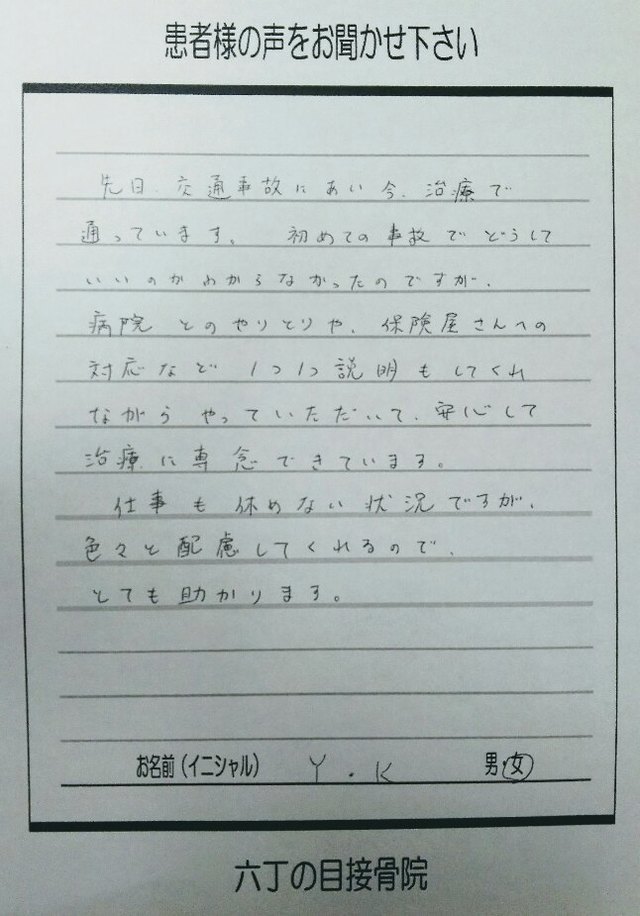 患者様の声をお聞かせ下さい
先日、交通事故にあい今、治療で
通っています。 初めての事故でどうして
いいのかわからなかったのですが、
病院とのやりとりや、保険屋さんへの
対応など1つ1つ説明もしてくれ
ながらやっていただいて、安心して
治療に専念できています。
仕事も休めない状況ですが、
色々と配慮してくれるので、
とても助かります。
お名前(イニシャル) Y.K 男・女
六丁の目接骨院